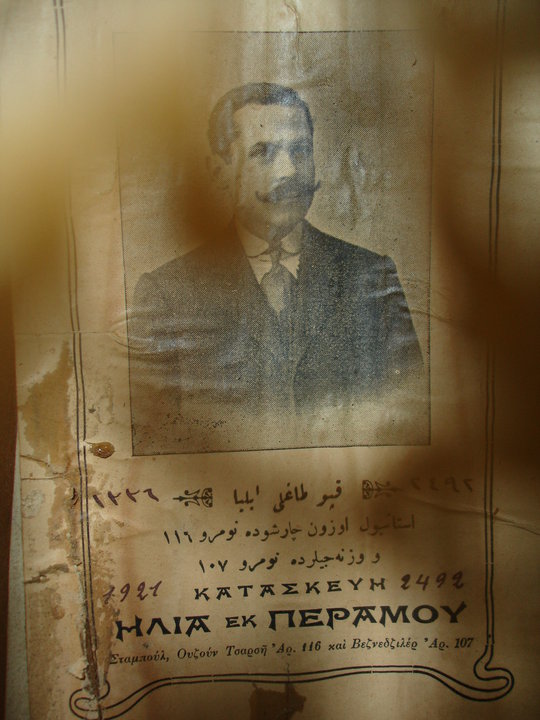 ١٣٣٦ قپو طاغلی ایلیا ٢٤٩٢
استانبول اوزون چارشوده نومرو ١١٦
و وزنه‌جیلرده نومرو ١٠٧
1921 ΚΑΤΑΣΚΕΥΗ 2492
ΗΛΙΑ ΕΚ ΠΕΡΑΜΟΥ
Σταμπούλ, Ουζούν Τσαρσῆ Ἀρ. 116 καὶ Βεζνεδζιλέρ Ἀρ. 107